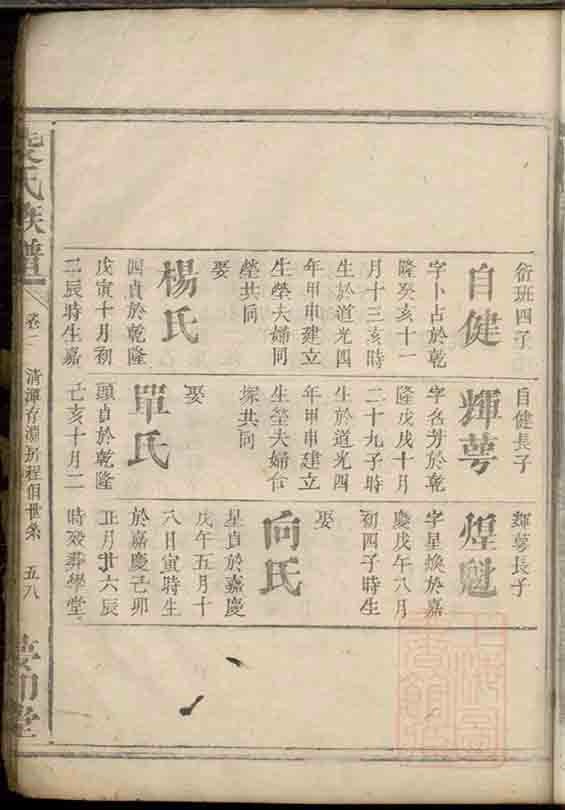 衍班四子
自健
字卜占於乾
隆癸亥十一
月十三亥時
生於道光四
年甲申建立
生塋夫婦同
塋共同
娶
楊氏
四貞於乾隆
戊寅十月初
三辰時生嘉
自健長子
輝萼
字名芳於乾
隆戊戌十月
二十九子時
生於道光四
年甲申建立
生塋夫婦合
塚共同
娶
單氏
頭貞於乾隆
己亥十月二
輝萼長子
煌魁
字星煥於嘉
慶戊午八月
初四子時生
娶
向氏
星貞於嘉慶
戊午五月十
八月寅時生
於嘉慶己卯
正月廿六辰
時歿葬學堂
氏族譜
卷二
五八
堂